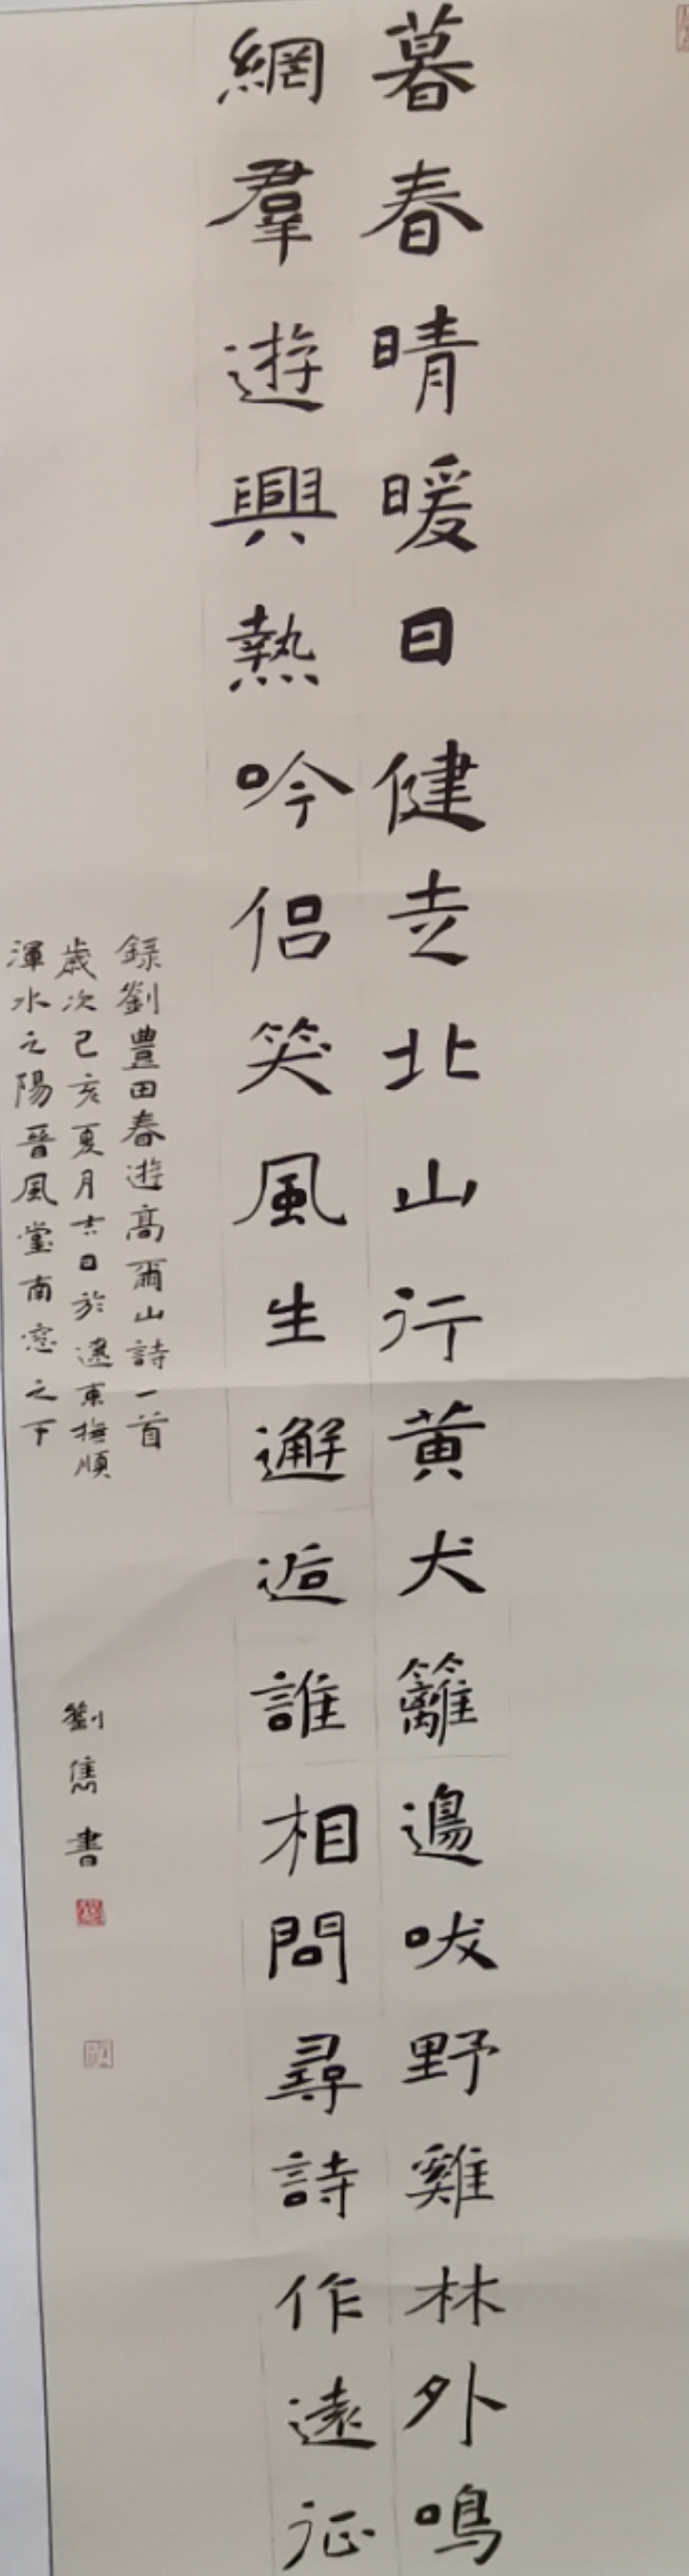 暮春晴暖日健走北山行黄犬籬邊吠野雞林外鳴
網羣遊興熱吟侣笑風生邂逅誰相問尋詩作遠征
錄劉豊田春遊髙爾山詩一首
歲次己亥夏月吉日於遼東撫順
渾水之陽晉風堂南窓之下
劉雋書